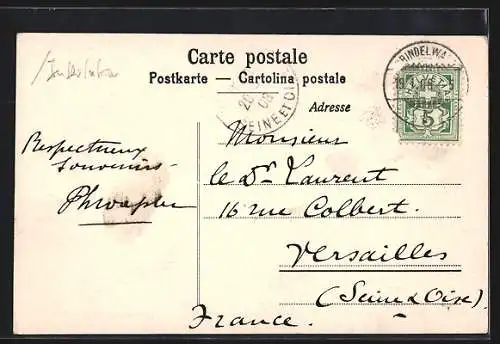 Carte postale
Postkarte — Cartolina postale
Adresse
RINDELWA
5
SEINE ET OI
Respectueux
souvenirs
Monsieur
le Dr Laurent
16 rue Colbert.
Versailles
(Seine & Oise).
France.